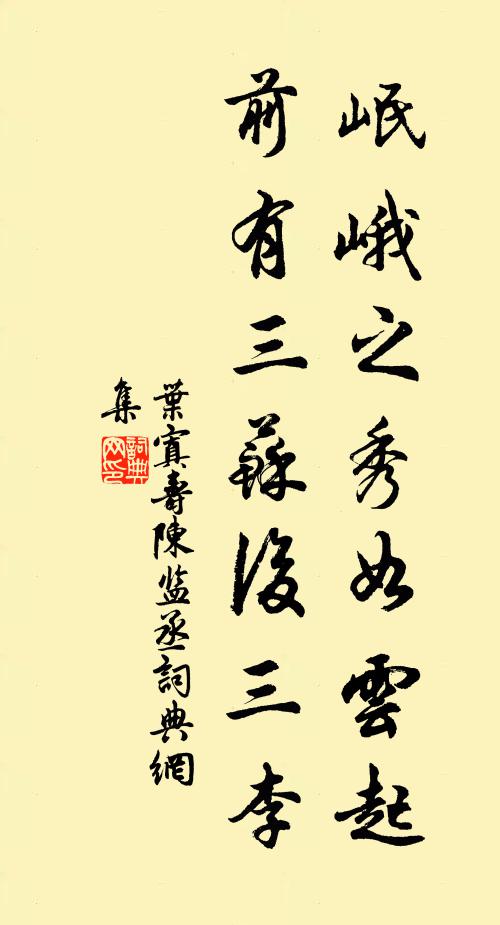 岷峨之秀如雲起
前有三蘇後三李
葉寘壽陳监丞詞典網
集
詞典网印